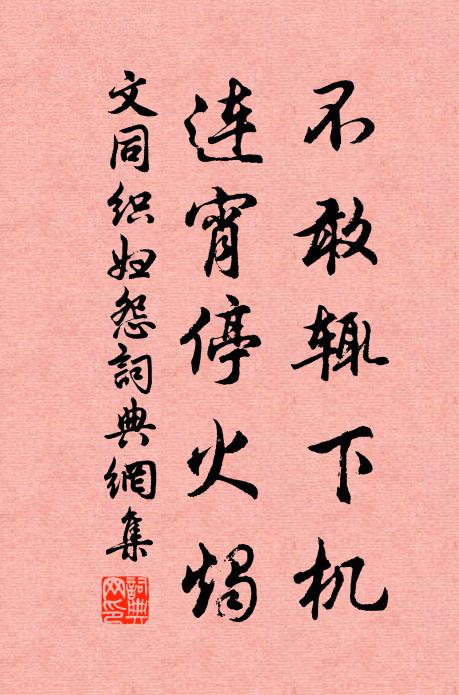 不敢辄下机
连宵停火烛
文同织妇怨詞典網集
詞典网印